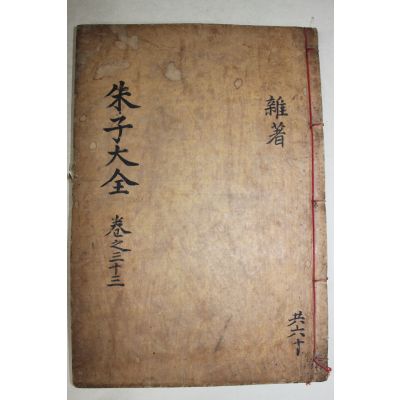 雜著
朱子大全
卷之三十三
共六十